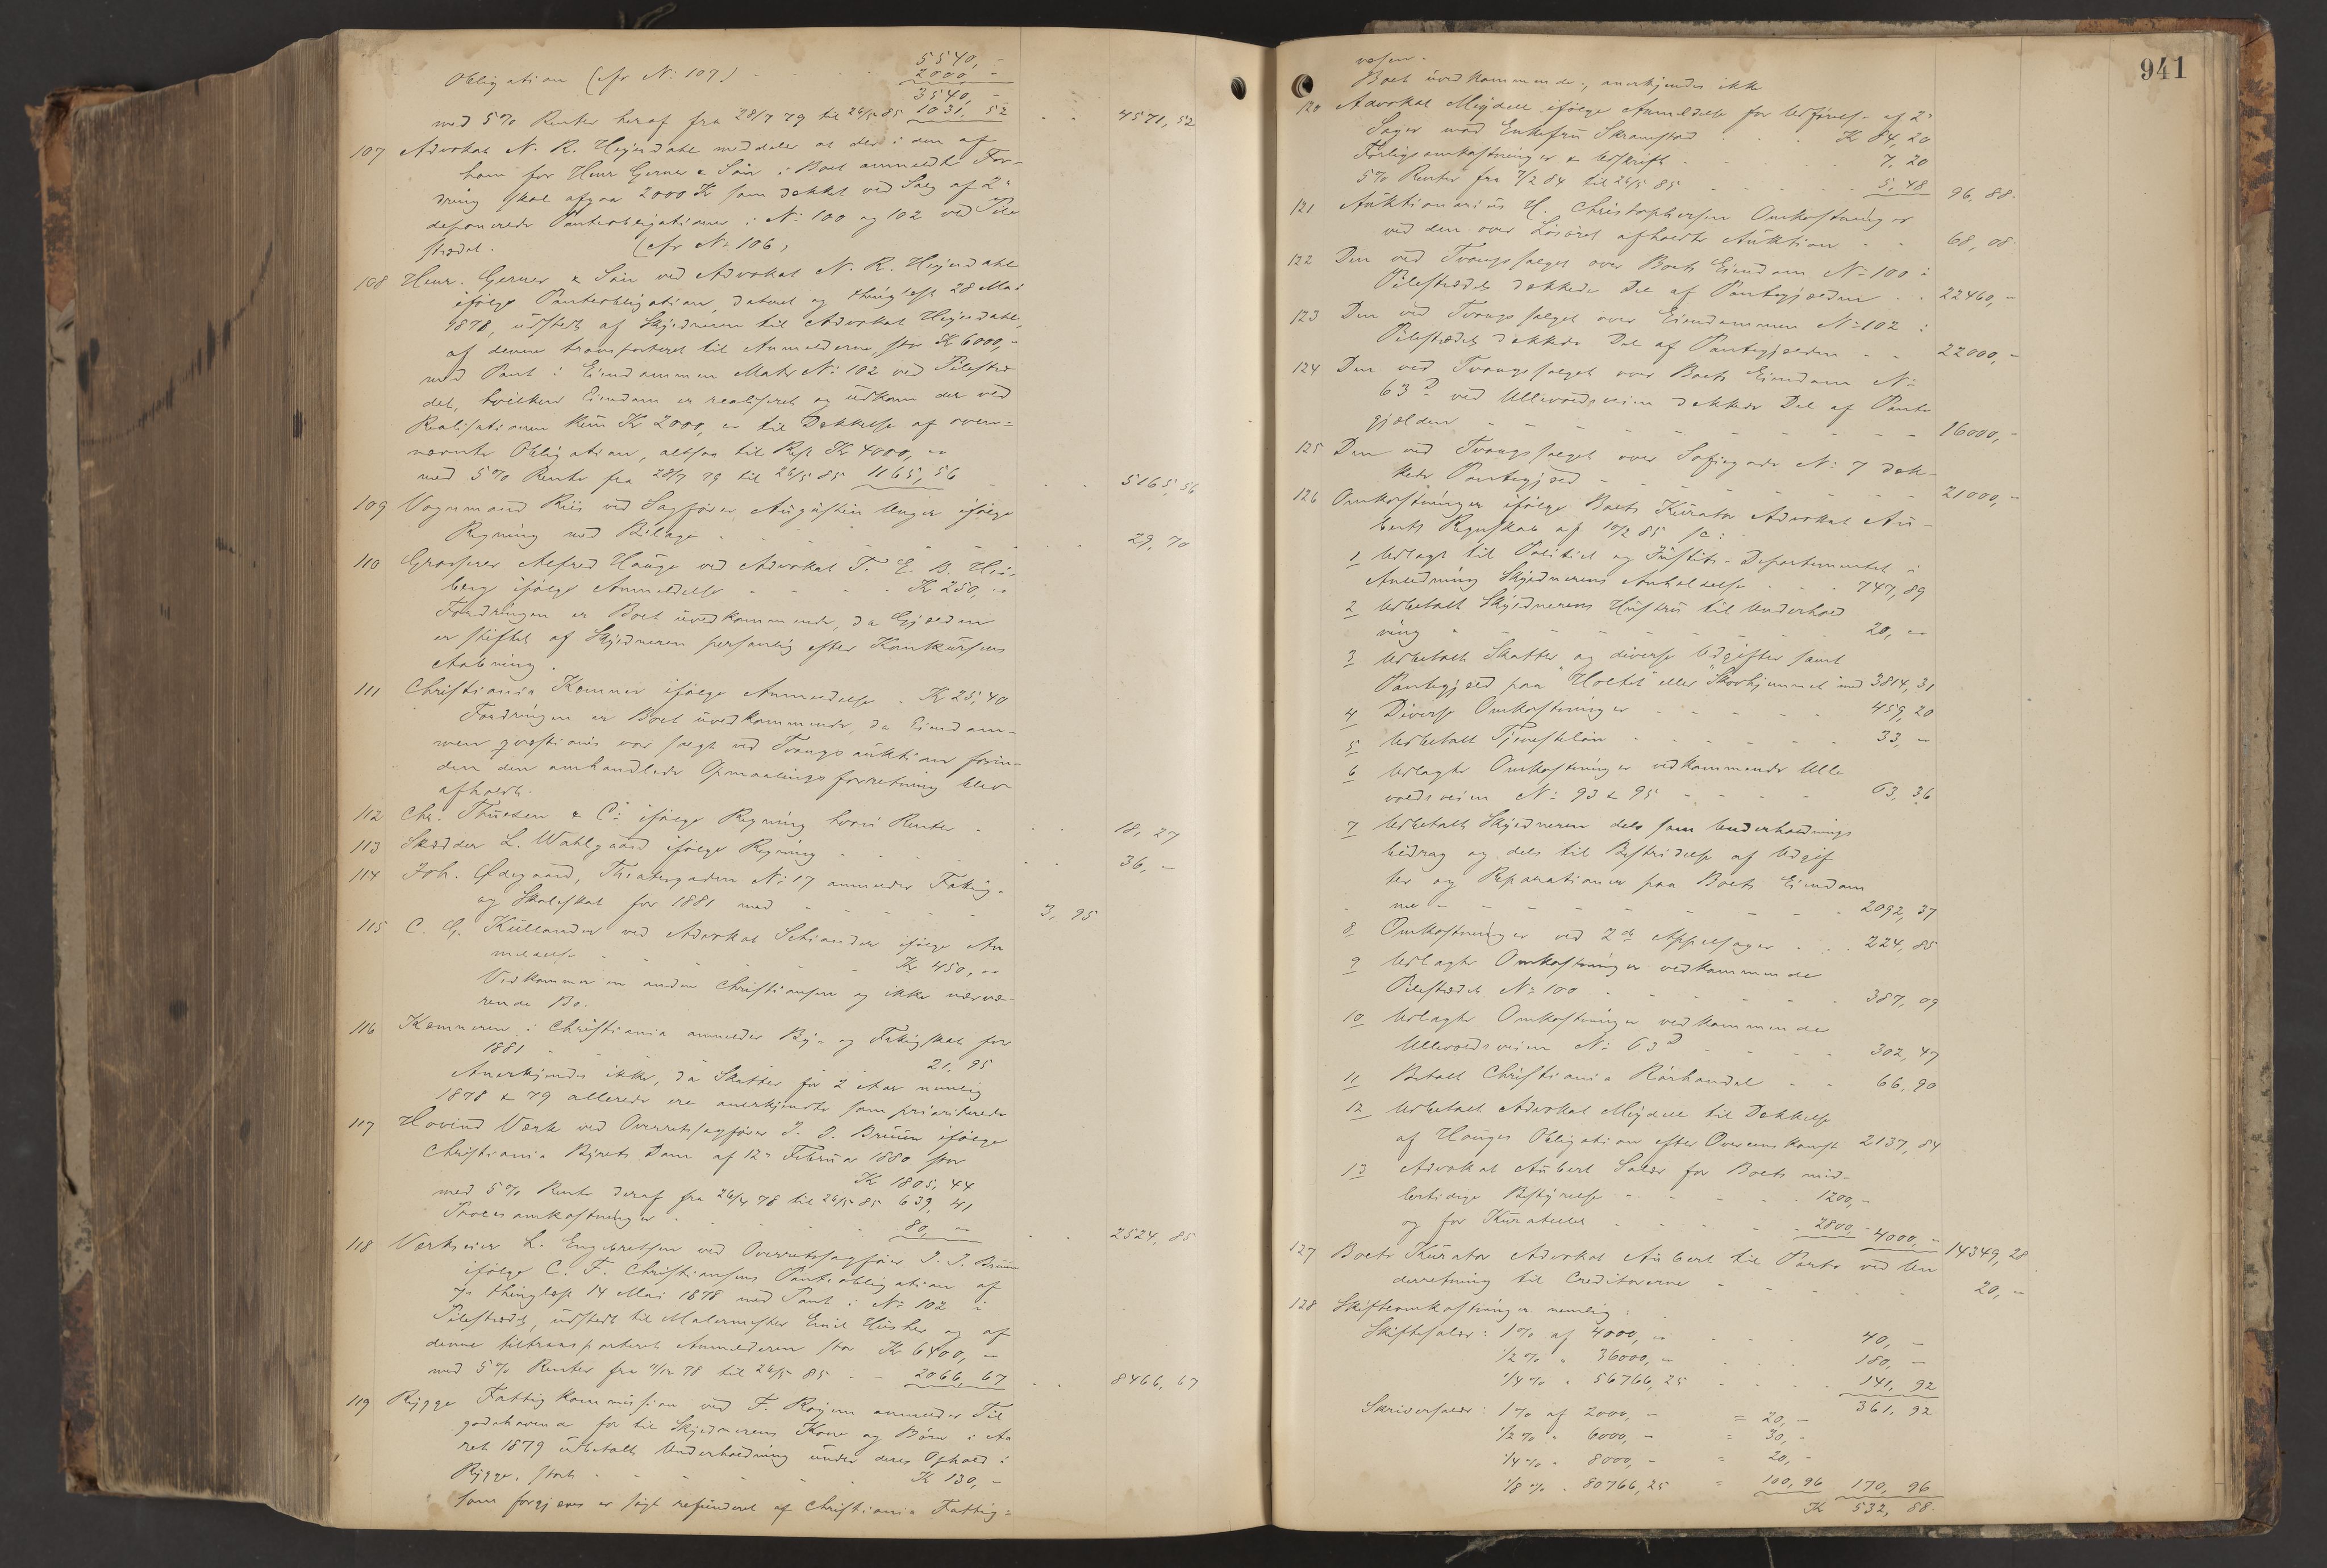 5540, -
Obligation (cfr No 107) - 2000 -
3540, -
med 5% Renter heraf fra 28/7 79 til 26/5 85 1031, 52 - - 4571, 52
107 Advokat N. R. Heyerdahl meddeler at der i den af
ham for Henr Gerner & Sön i Boet anmeldte For-
dring skal afgaa 2000 Kr som dækket ved Salg af 2de
deponerede Panteobligationer i No 100 og 102 ved Pile
strædet. (cfr No 106)
108 Henr. Gerner & Sön ved Advokat N. R. Heyerdahl
ifölge Panteobligation, dateret og thinglæst 28 Mai
1878, udstedt af Skyldneren til Advokat Heyerdahl,
af denne transporteret til Anmelderne, stor Kr 6000, -
med Pant i Eiendommen Matr No 102 ved Pilestræ
det, hvilken Eiendom er realiseret og udkom der ved
Realisationen kun Kr 2000, - til Dækkelse af oven-
nævnte Obligation, altsaa til Rest Kr 4000, -
med 5% Rente fra 28/7 79 til 26/5 85 1165, 56 - - - 5165, 56
109 Vognmand Riis ved Sagförer Augustin Unger ifölge
Regning med Bilage - - - - - 29, 70
110 Grosserer Alfred Hauge ved Advokat T. E. B. Hei-
berg ifölge Anmeldelse - - - - Kr 250, -
Fordringen er Boet uvedkommende, da Gjælden
er stiftet af Skyldneren personlig efter Konkursens
Aabning.
111 Christiania Kemner ifölge Anmeldelse - Kr 25, 40
Fordringen er Boet uvedkommende, da Eiendom-
men qvæstionis var solgt ved Tvangsauktion förin-
den den omhandlede Opmaalingsforretning blev
afholdt.
112 Chr. Thuesen & Co ifölge Regning hvori Renter - - - 18, 27
113 Skrædder L. Wahlgaard ifölge Regning - - - - 36, -
114 Joh. Ødegaard, Theatergaden No 17 anmelder Fattig-
og Skoleskat for 1881 med - - - - - 3, 95
115 C. G. Küllander ved Advokat Schiander ifölge An
meldelse - - - - - Kr 450, -
Vedkommer en anden Christiansen og ikke nærvæ-
rende Bo.
116 Kæmneren i Christiania anmelder By- og Fattigskat for
1881 - - - - - 21, 95
Anerkjendes ikke, da Skatter for 2 Aar nemlig
1878 & 79 allerede ere anerkjendte som prioriterede
117 Hovind Værk ved Overretssagförer J. J. Bruun ifölge
Christiania Byrets Dom af 12te Februar 1880 stor
Kr 1805, 44
med 5% Rente deraf fra 26/4 78 til 26/5 85 639, 41
Procesomkostninger - - - - 80, - - - 2524, 85
118 Værkseier L. Engebretsen ved Overretssagförer J. J. Bruun
ifölge C. F. Christiansens Panteobligation af
thinglæst 14 Mai 1878 med Pant i No 102 i
Pilestrædet, udstedt til Malermester Emil Husher og af
denne tiltransporteret Anmelderen stor Kr 6400, -
med 5% Renter fra 11/12 78 til 26/5 85 - - 2066, 67 - - 8466, 67
119 Rygge Fattigkommission ved F. Rojem anmelder Til
godehavende for til Skyldnerens Kone og Börn i Aa
ret 1879 udbetalt Underholdning under deres Ophold i
Rygge, stort - - - - - Kr 130, -
som forgjæves er sögt refunderet af Christiania Fattig-
941
væsen.
Boet uvedkommende, anerkjendes ikke
120 Advokat Meydell ifölge Anmeldelse for Udförelse af 2de
Sager mod Enkefru Skramstad - - Kr 84, 20
Forligsomkostninger & Udskrift - - - 7, 20
5% Renter fra 7/2 84 til 26/5 85 - - - 5, 48 96, 88.
121 Auktionarius H. Christophersen Omkostninger
ved den over Lösöret afholdte Auktion - - 68, 08.
122 Den ved Tvangssalget over Boets Eiendom No 100 i
Pilestrædet dækkede Del af Pantegjælden - - 22460, -
123 Den ved Tvangssalget over Eiendommen No 102 i
Pilestrædet dækkede Del af Pantegjælden - - 22000, -
124 Den ved Tvangssalget over Boets Eiendom No
63 D ved Ullevoldsveien dækkede Del af Pante
gjælden - - - - - - - 16000, -
125 Den ved Tvangssalget over Sofiegade No 7 dæk-
kede Pantegjæld - - - - - - 21000, -
126 Omkostninger ifölge Boets Kurator Advokat Au-
berts Regnskab af 10/2 85 sc:
1 Udlagt til Politiet og Justits-Departementet i
Anledning Skyldnerens Anholdelse - - - 747, 89
2 Udbetalt Skyldnerens Hustru til Underhold
ning - - - - - - - 20, -
3 Udbetalt Skatter og diverse Udgifter samt
Pantegjæld paa "Holtet" eller "Skovhjemmet" med 3814, 31
4 Diverse Omkostninger - - - - 459, 20
5 Udbetalt Tjenestelön - - - - - 33, -
6 Udlagte Omkostninger vedkommende Ulle
voldsveien No 93 & 95 - - - - 63, 36
7 Udbetalt Skyldneren dels som Underholdnings
bidrag og dels til Bestridelse af Udgif
ter og Reparationer paa Boets Eiendom
me - - - - - - - 2092, 37
8 Omkostninger ved 2de Appelsager - - - 224, 85
9 Udlagte Omkostninger vedkommende
Pilestrædet No 100 - - - - - 387, 09
10 Udlagte Omkostninger vedkommende
Ullevoldsveien No 63 D - - - - 302, 47
11 Betalt Christiania Rörhandel - - 66, 90
12 Udbetalt Advokat Meydell til Dækkelse
af Hauges Obligation efter Overenskomst 2137, 84
13 Advokat Aubert Salær for Boets mid-
lertidige Bestyrelse - - - - 1200, -
og for Kuratelet - - - - 2800 - 4000, - 14349, 28
127 Boets Kurator Advokat Aubert til Porto ved Un
derretning til Creditorerne - - - - 20, -
128 Skifteomkostninger nemlig:
Skiftesalær: 1% af 4000, - - - 40, -
1/2% " 36000, - - - 180, -
1/4% " 56766, 25 - - - 141, 92
361, 92
Skriversalær: 1% af 2000, - = 20, -
1/2% " 6000, - = 30, -
1/4% " 8000, - = 20, -
1/8% " 80766, 25 = 100, 96 170, 96
Kr 532, 88.